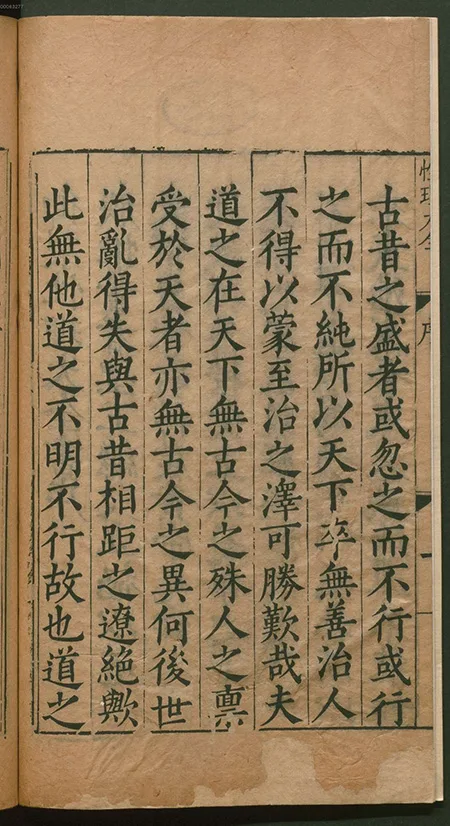 古昔之盛者或忽之而不行或行
之而不純所以天下卒無善治人
不得以蒙至治之澤可勝歎哉夫
道之在天下無古今之殊人之稟
受於天者亦無古今之異何後世
治亂得失與古昔相距之遼絕歟
此無他道之不明不行故也道之